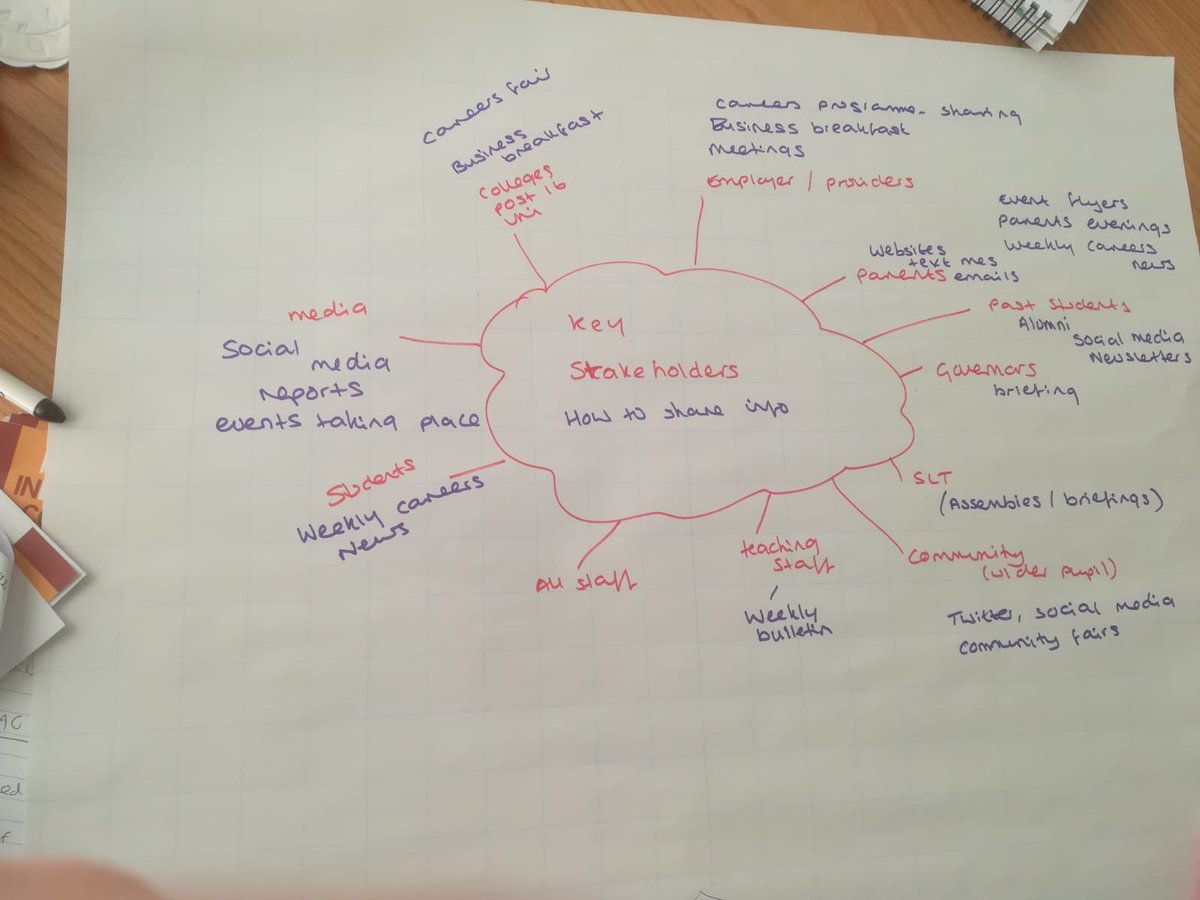 careers fair
Business
breakfast
colleges
post 16
uni
careers programme - sharing
Business breakfast
meetings
Employer / providers
event flyers
parents evenings
Weekly careers
news
websites
text mes
parents emails
past students
Alumni
social media
Newsletters
Governors
briefing
SLT
(Assemblies / briefings)
community
(wider pupil)
Twitter, social media
community fairs
teaching
staff
Weekly
bulletin
All staff
Students
Weekly careers
News
media
Social
media
reports
events taking place
key
Stakeholders
How to share info
IN
AG
ed